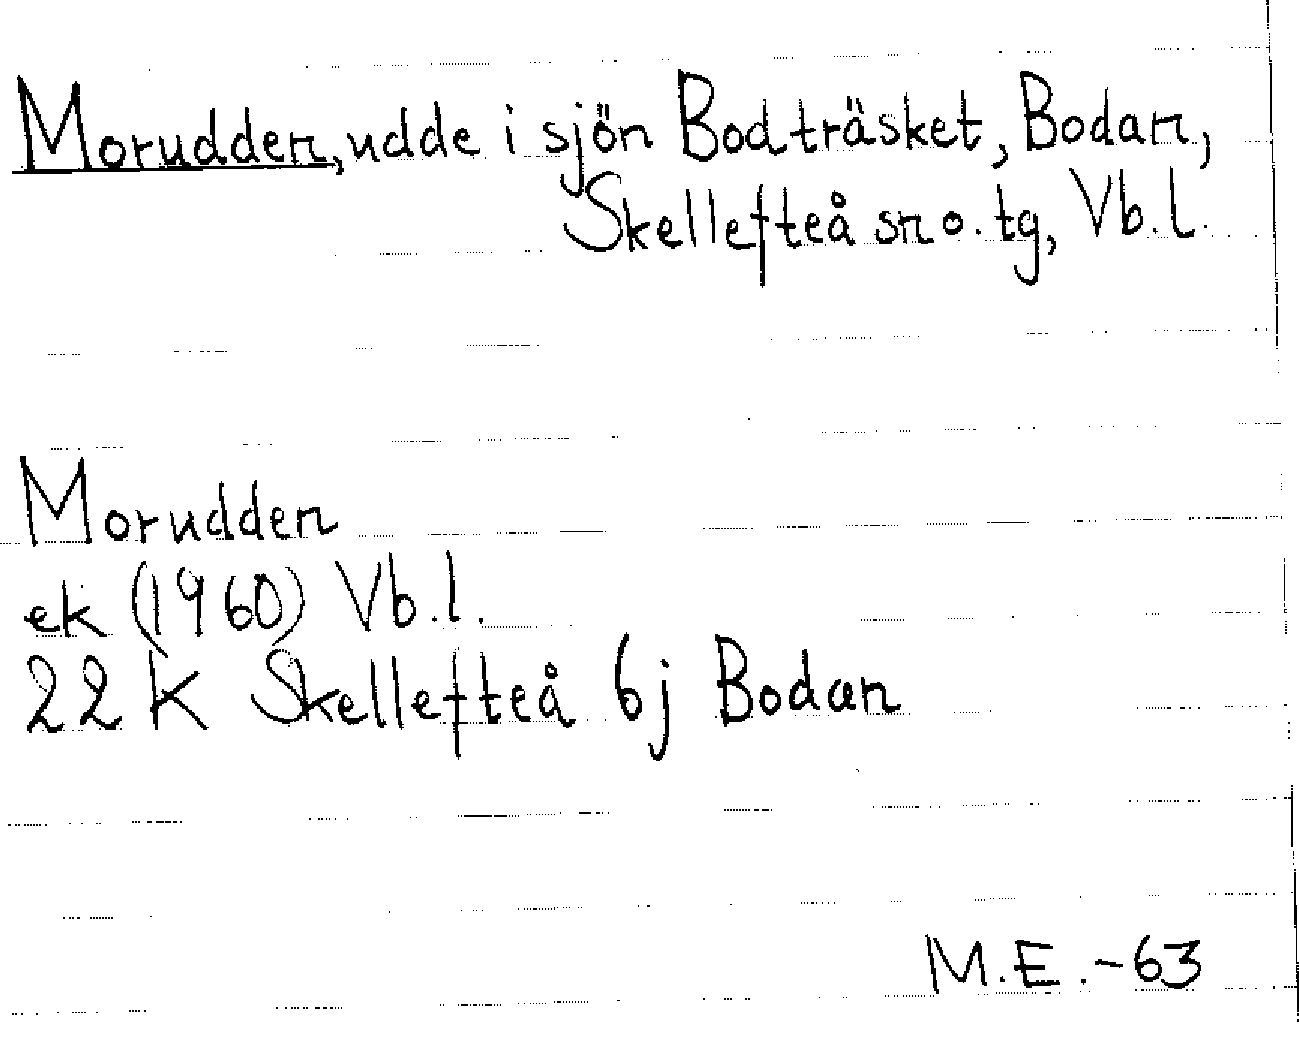 Morudden, udde i sjön Bodträsket, Bodan,
Skellefteå sn o. tg, Vb.l.
Morudden
ek (1960) Vb.l.
22 K Skellefteå 6j Bodan
M.E. -63